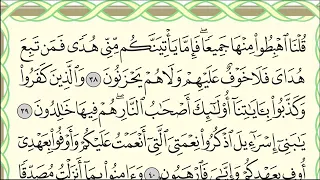 قُلْنَا ٱهْبِطُوا۟ مِنْهَا جَمِيعًا ۖ فَإِمَّا يَأْتِيَنَّكُم مِّنِّى هُدًى فَمَن تَبِعَ
هُدَاىَ فَلَا خَوْفٌ عَلَيْهِمْ وَلَا هُمْ يَحْزَنُونَ ٣٨ وَٱلَّذِينَ كَفَرُوا۟
وَكَذَّبُوا۟ بِـَٔايَـٰتِنَآ أُو۟لَـٰٓئِكَ أَصْحَـٰبُ ٱلنَّارِ ۖ هُمْ فِيهَا خَـٰلِدُونَ
٣٩ يَـٰبَنِىٓ إِسْرَٰٓءِيلَ ٱذْكُرُوا۟ نِعْمَتِىَ ٱلَّتِىٓ أَنْعَمْتُ عَلَيْكُمْ وَأَوْفُوا۟ بِعَهْدِىٓ
أُوفِ بِعَهْدِكُمْ وَإِيَّـٰىَ فَٱرْهَبُونِ ٤٠ وَءَامِنُوا۟ بِمَآ أَنزَلْتُ مُصَدِّقًا